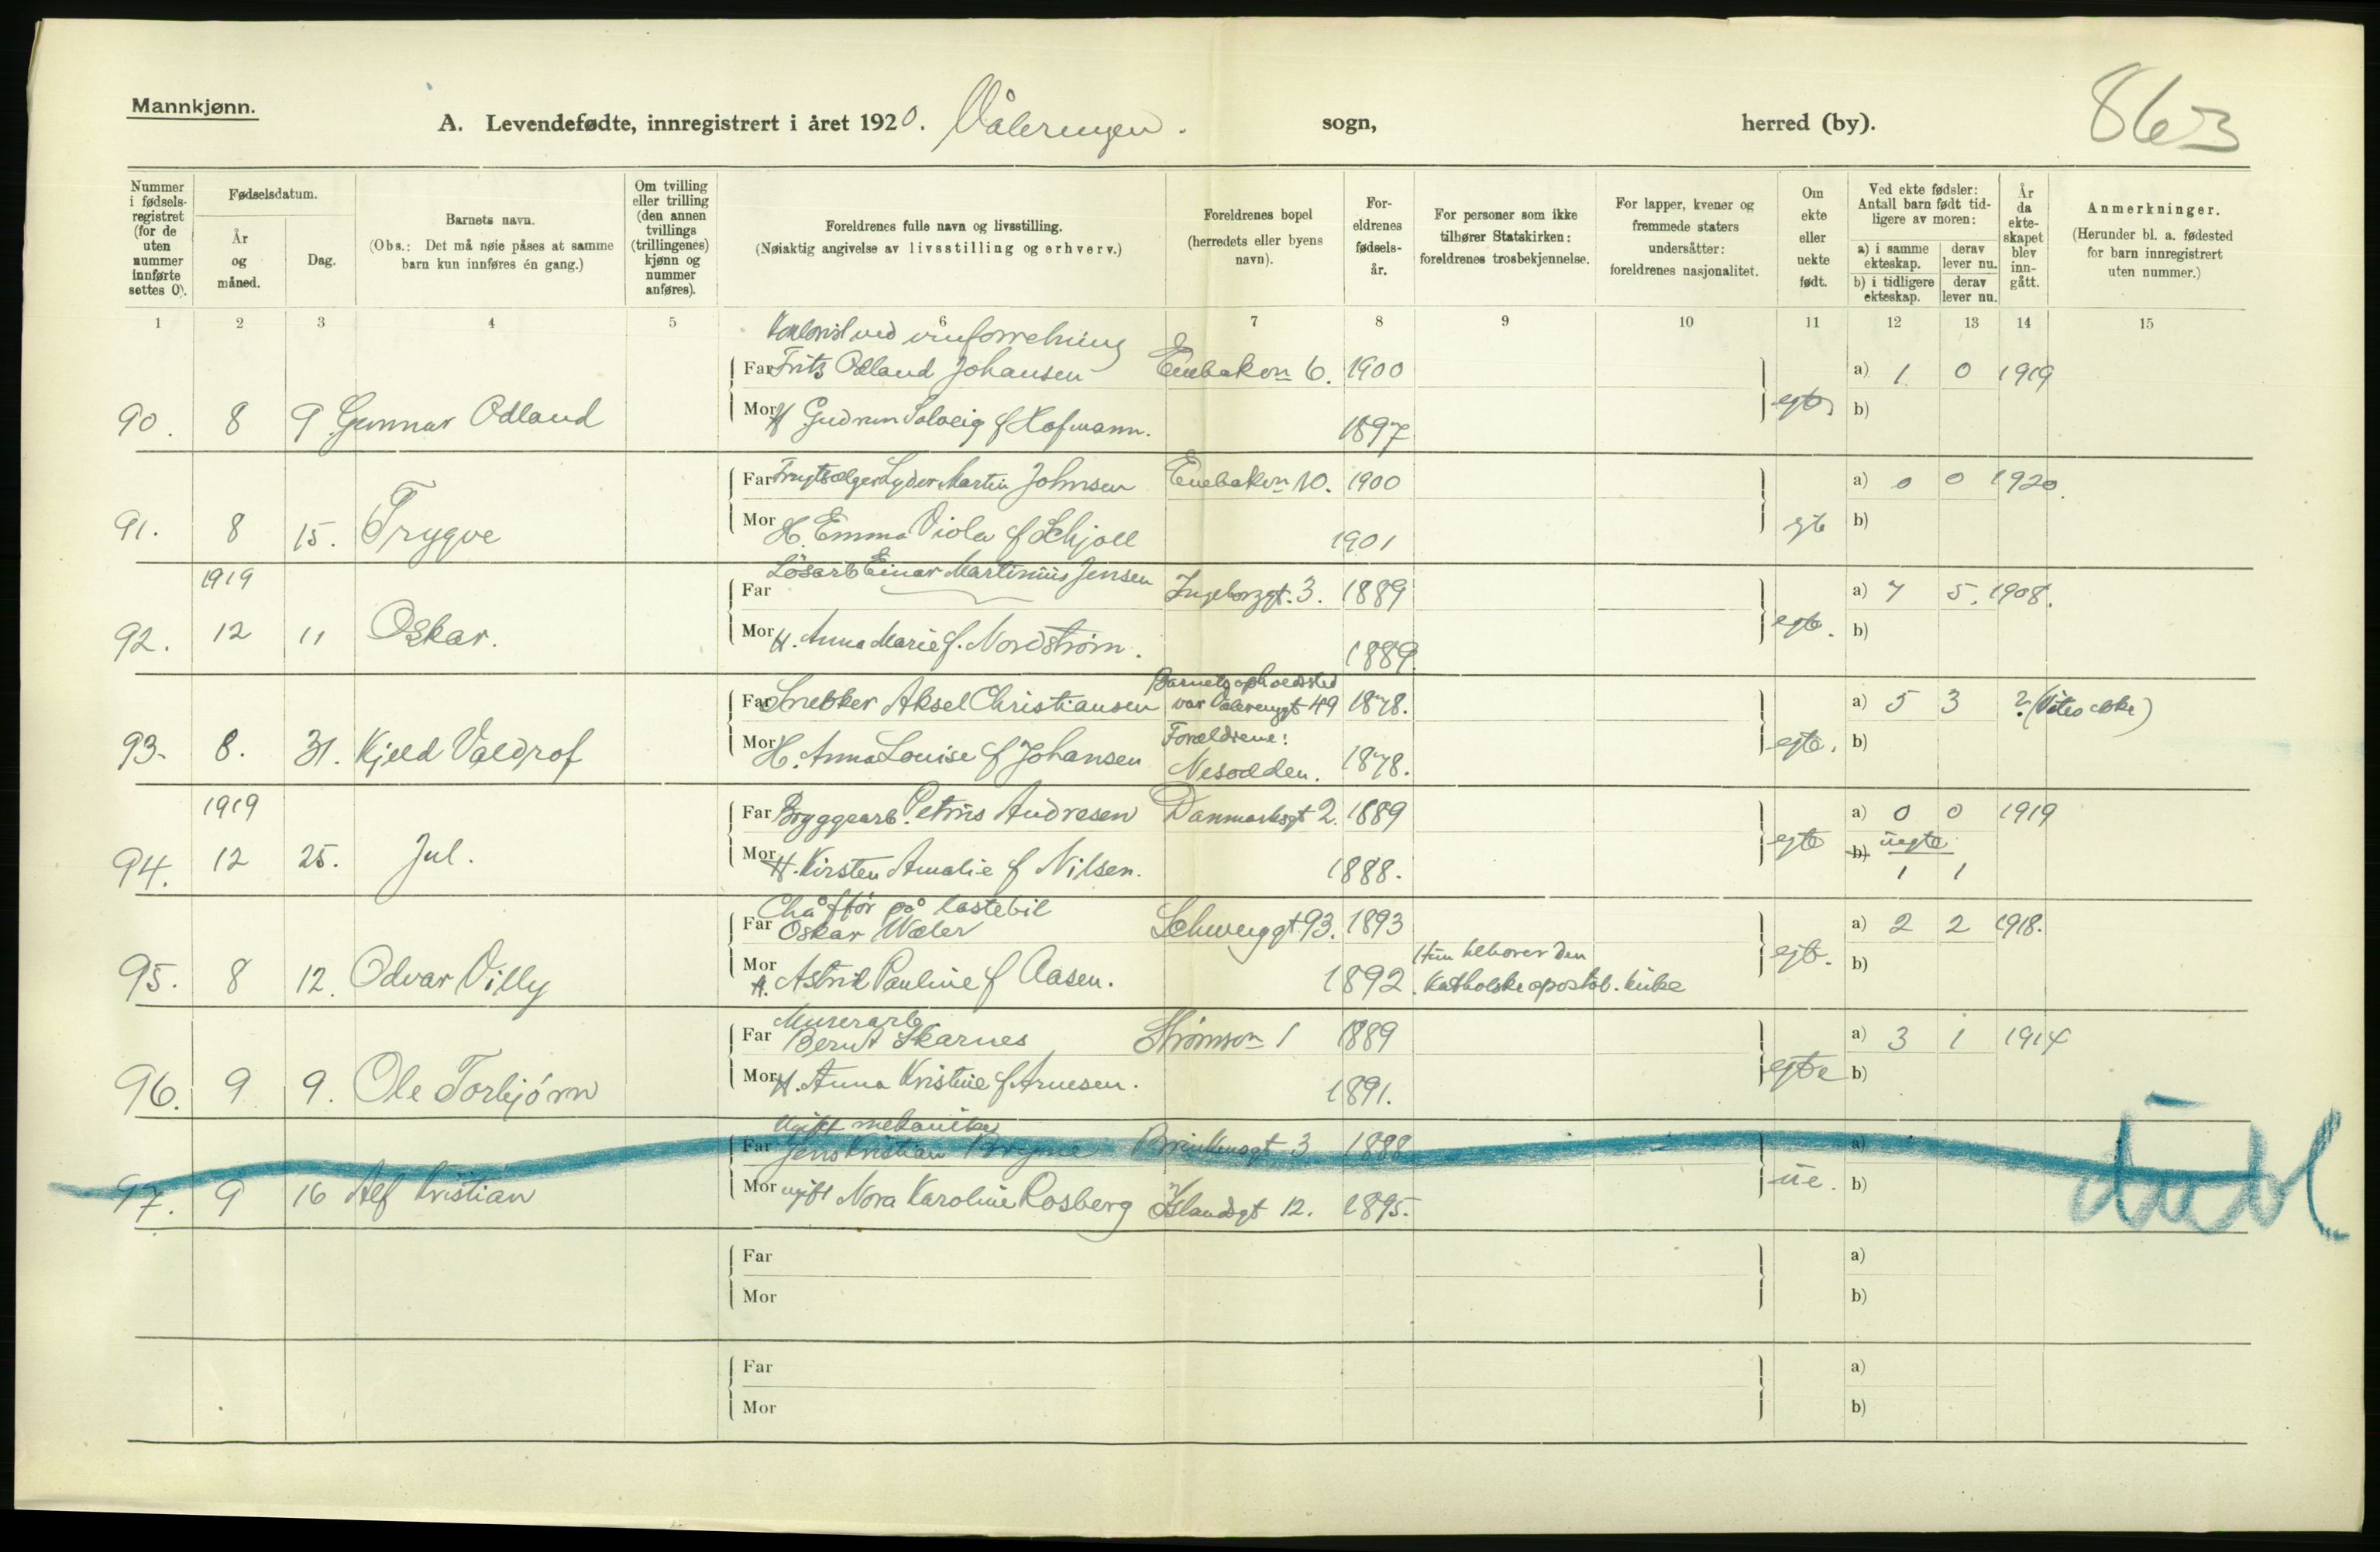 Mannkjønn.
A. Levendefødte, innregistrert i året 1920. Våleringen. sogn, herred (by). 863
Nummer i fødsels-registret (for de uten nummer innførte settes 0).
Fødselsdatum.
År og måned.
Dag.
Barnets navn.
(Obs.: Det må nøie påses at samme barn kun innføres én gang.)
Om tvilling eller trilling (den annen tvillings (trillingenes) kjønn og nummer anføres).
Foreldrenes fulle navn og livsstilling.
(Nøiaktig angivelse av livsstilling og erhverv.)
Foreldrenes bopel (herredets eller byens navn).
For-eldrenes fødsels-år.
For personer som ikke tilhører Statskirken: foreldrenes trosbekjennelse.
For lapper, kvener og fremmede staters undersåtter: foreldrenes nasjonalitet.
Om ekte eller uekte født.
Ved ekte fødsler: Antall barn født tid-ligere av moren:
a) i samme ekteskap.
derav lever nu.
b) i tidligere ekteskap.
derav lever nu.
År da ekte-skapet blev inn-gått.
Anmerkninger.
(Herunder bl. a. fødested for barn innregistrert uten nummer.)
1 2 3 4 5 6 7 8 9 10 11 12 13 14 15
Kontorist ved vinforretning
Far Fritz Odland Johansen Enebakvn 6. 1900 a) 1 0 1919
90. 8 9 Gunnar Odland Mor H Gudrun Solveig f Hofmann. 1897 egte b)
Far Frugtsælger Lyder Martin Johnsen Enebakvn 10. 1900 a) 0 0 1920.
91. 8 15. Trygve Mor H. Emma Viola f Schjoll 1901 egte b)
1919 Far Løsarb Einar Martinius Jensen Ingeborggt. 3. 1889 a) 7 5. 1908.
92. 12 11 Oskar. Mor H. Anna Marie f. Nordstrøm. 1889. egte. b)
Barnets opholdssted
Far Snekker Aksel Christiansen var Vålerenggt 49 1878. a) 5 3 ? (Vites ikke)
93. 8. 31. Kjeld Valdrof Mor H. Anna Louise f Johansen Forældrene: Nesodden. 1878. egte. b)
1919 Far Bryggearb. Petrus Andresen Danmarksgt 2. 1889 a) 0 0 1919
94. 12 25. Jul. Mor H. Kirsten Amalie f Nilsen. 1888. egte b) uegte
1 1
Chåffør på lastebil
Far Oskar Wæler Schweiggt 93. 1893 a) 2 2 1918.
Hun tilhører den
95. 8 12. Odvar Villy Mor H. Astrid Pauline f Aasen. 1892. Katholske apostol. kirke egte. b)
Murerarb
Far Bernt Skarnes Strømsvn 1 1889 a) 3 1 1914
96. 9 9. Ole Torbjörn Mor H. Anna Kristine f Arnesen. 1891. egte b)
Ugift mekaniker
Far Jens Kristian Bryne Brinkensgt 3 1888 a)
97. 9 16 Alf Kristian Mor ugift Nora Karoline Rosberg Islandsgt 12. 1895. ue. b)
Far a)
Mor b)
Far a)
Mor b)